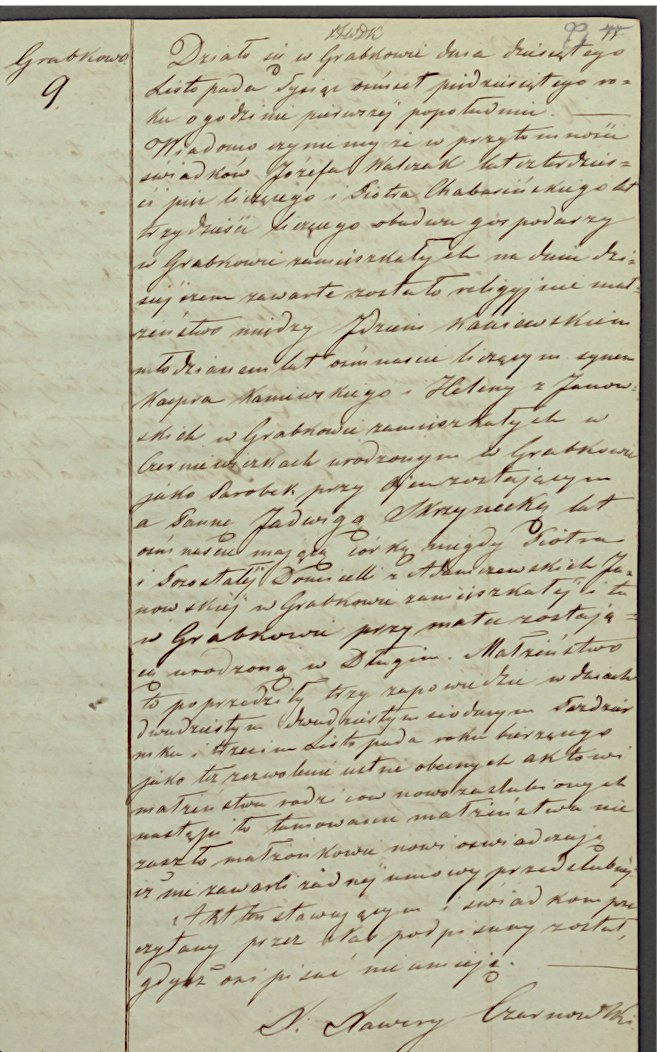 Grabkowo
9
Działo się w Grabkowie dnia dziesiątego
Listopada Tysiąc ośmset pięćdziesiątego ro=
ku o godzinie pierwszej popołudniu.
Wiadomo czynimy że w przytomności
świadków Józefa Walczak lat czterdzieś=
ci pięć liczącego i Piotra Chabasińskiego lat
trzydzieści liczącego obudwu gospodarzy
w Grabkowie zamieszkałych na dniu dzi=
siejszem zawarte zostało religijnie mał=
żeństwo między Idzim Kaniewskim
młodzianem lat ośmnaście liczącym synem
Kacpra Kaniewskiego i Heleny z Janow=
skich w Grabkowie zamieszkałych w
urodzonym w Grabkowie
jako Parobek przy Ojcu zostającym
a Panną Jadwigą Skrzynecką lat
ośmnaście mającą córką niegdy Piotra
i Pozostałej Domicelli z Adamczewskich Ja=
nowskiej w Grabkowie zamieszkałej i tu
w Grabkowie przy matce zostają=
cą urodzoną w Długim. Małżeństwo
to poprzedziły trzy zapowiedzie w dniach
dwudziestym dwudziestym siodmym Paździer
nika i trzecim Listopada roku bierzącego
jako też zezwolenie ustne obecnych aktowi
małżeństwa rodziców nowozaślubionych
nastąpiło tamowanie małżeństwa nie
zaszło małżonkowie nowi oświadczają
iż nie zawarli żadnej umowy przedślubnej
Akt ten stawającym i świadkom prze
czytany przez Nas podpisany został,
gdyż oni pisać nie umieją.
X. Xawery Czarnowski